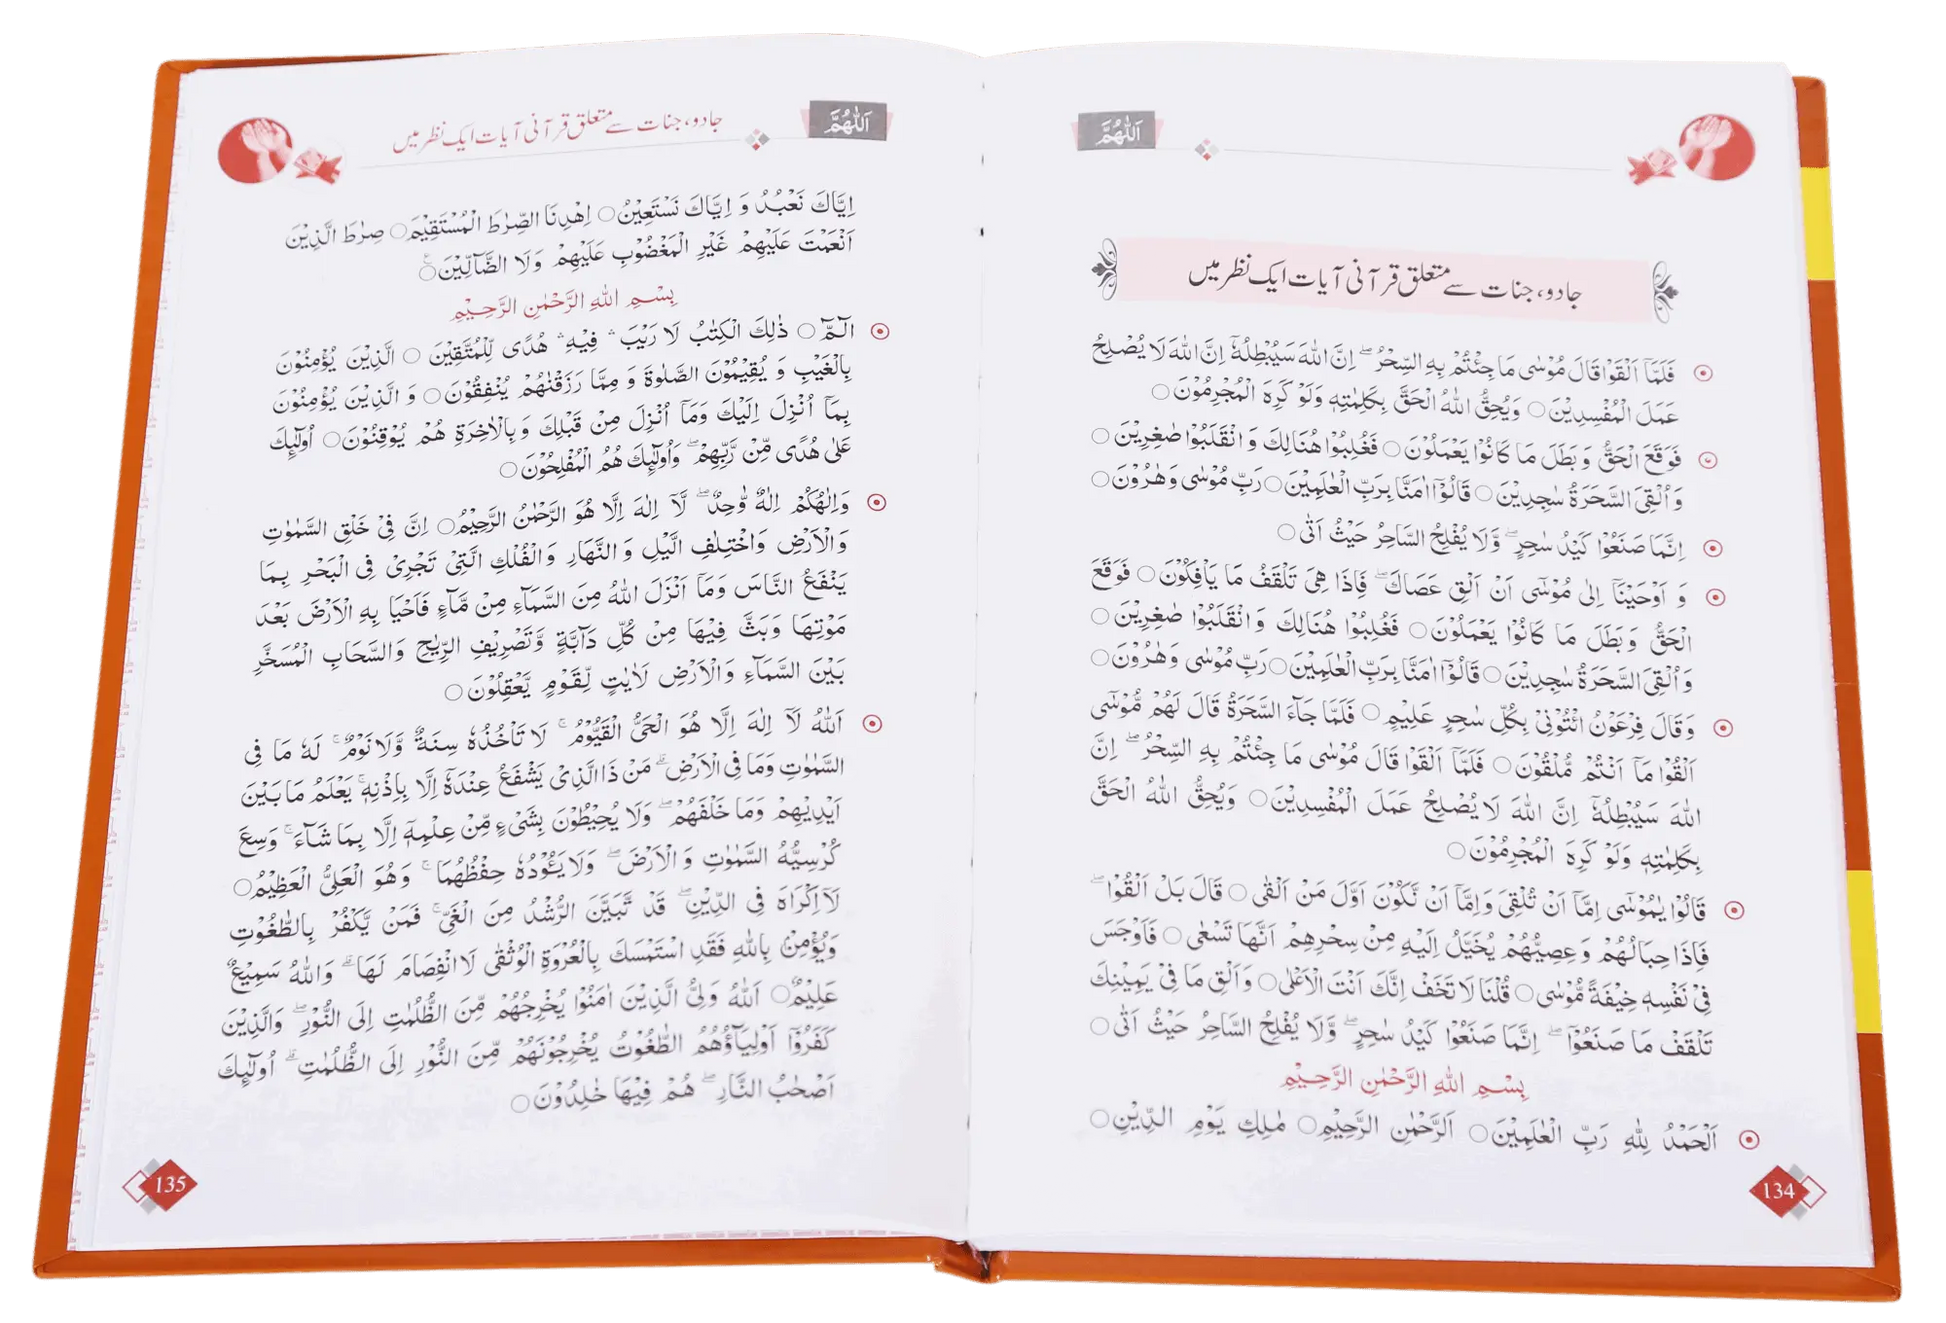 اَللّٰهُمَّ
جادو، جنات سے متعلق قرآنی آیات ایک نظر میں
فَلَمَّاۤ اَلْقَوْا قَالَ مُوْسٰى مَا جِئْتُمْ بِهِ السِّحْرُ ؕ اِنَّ اللّٰهَ سَيُبْطِلُهٗ اِنَّ اللّٰهَ لَا يُصْلِحُ
عَمَلَ الْمُفْسِدِيْنَ○ وَيُحِقُّ اللّٰهُ الْحَقَّ بِكَلِمٰتِهٖ وَلَوْ كَرِهَ الْمُجْرِمُوْنَ○
فَوَقَعَ الْحَقُّ وَ بَطَلَ مَا كَانُوْا يَعْمَلُوْنَ○ فَغُلِبُوْا هُنَالِكَ وَ انْقَلَبُوْا صٰغِرِيْنَ○
وَ اُلْقِىَ السَّحَرَةُ سٰجِدِيْنَ○ قَالُوْۤا اٰمَنَّا بِرَبِّ الْعٰلَمِيْنَ○ رَبِّ مُوْسٰى وَ هٰرُوْنَ○
اِنَّمَا صَنَعُوْا كَيْدُ سٰحِرٍ ؕ وَّلَا يُفْلِحُ السَّاحِرُ حَيْثُ اَتٰى○
وَ اَوْحَيْنَاۤ اِلٰى مُوْسٰۤى اَنْ اَلْقِ عَصَاكَ ۚ فَاِذَا هِىَ تَلْقَفُ مَا يَاْفِكُوْنَ○ فَوَقَعَ
الْحَقُّ وَ بَطَلَ مَا كَانُوْا يَعْمَلُوْنَ○ فَغُلِبُوْا هُنَالِكَ وَ انْقَلَبُوْا صٰغِرِيْنَ○
وَ اُلْقِىَ السَّحَرَةُ سٰجِدِيْنَ○ قَالُوْۤا اٰمَنَّا بِرَبِّ الْعٰلَمِيْنَ○ رَبِّ مُوْسٰى وَ هٰرُوْنَ○
وَ قَالَ فِرْعَوْنُ ائْتُوْنِىْ بِكُلِّ سٰحِرٍ عَلِيْمٍ○ فَلَمَّا جَآءَ السَّحَرَةُ قَالَ لَهُمْ مُّوْسٰۤى
اَلْقُوْا مَاۤ اَنْتُمْ مُّلْقُوْنَ○ فَلَمَّاۤ اَلْقَوْا قَالَ مُوْسٰى مَا جِئْتُمْ بِهِ السِّحْرُ ؕ اِنَّ
اللّٰهَ سَيُبْطِلُهٗ اِنَّ اللّٰهَ لَا يُصْلِحُ عَمَلَ الْمُفْسِدِيْنَ○ وَيُحِقُّ اللّٰهُ الْحَقَّ
بِكَلِمٰتِهٖ وَلَوْ كَرِهَ الْمُجْرِمُوْنَ○
قَالُوْا يٰمُوْسٰٓى اِمَّاۤ اَنْ تُلْقِىَ وَ اِمَّاۤ اَنْ نَّكُوْنَ اَوَّلَ مَنْ اَلْقٰى○ قَالَ بَلْ اَلْقُوْا ۚ
فَاِذَا حِبَالُهُمْ وَ عِصِيُّهُمْ يُخَيَّلُ اِلَيْهِ مِنْ سِحْرِهِمْ اَنَّهَا تَسْعٰى○ فَاَوْجَسَ
فِىْ نَفْسِهٖ خِيْفَةً مُّوْسٰى○ قُلْنَا لَا تَخَفْ اِنَّكَ اَنْتَ الْاَعْلٰى○ وَ اَلْقِ مَا فِىْ يَمِيْنِكَ
تَلْقَفْ مَا صَنَعُوْا ؕ اِنَّمَا صَنَعُوْا كَيْدُ سٰحِرٍ ؕ وَّلَا يُفْلِحُ السَّاحِرُ حَيْثُ اَتٰى○
بِسْمِ اللّٰهِ الرَّحْمٰنِ الرَّحِيْمِ
اَلْحَمْدُ لِلّٰهِ رَبِّ الْعٰلَمِيْنَ○ اَلرَّحْمٰنِ الرَّحِيْمِ○ مٰلِكِ يَوْمِ الدِّيْنِ○
134
اَللّٰهُمَّ
جادو، جنات سے متعلق قرآنی آیات ایک نظر میں
اِيَّاكَ نَعْبُدُ وَ اِيَّاكَ نَسْتَعِيْنُ○ اِهْدِنَا الصِّرٰطَ الْمُسْتَقِيْمَ○ صِرٰطَ الَّذِيْنَ
اَنْعَمْتَ عَلَيْهِمْ غَيْرِ الْمَغْضُوْبِ عَلَيْهِمْ وَلَا الضَّآلِّيْنَ○
بِسْمِ اللّٰهِ الرَّحْمٰنِ الرَّحِيْمِ
الٓـمّٓ○ ذٰلِكَ الْكِتٰبُ لَا رَيْبَ ۛ فِيْهِ ۛ هُدًى لِّلْمُتَّقِيْنَ○ الَّذِيْنَ يُؤْمِنُوْنَ
بِالْغَيْبِ وَ يُقِيْمُوْنَ الصَّلٰوةَ وَ مِمَّا رَزَقْنٰهُمْ يُنْفِقُوْنَ○ وَ الَّذِيْنَ يُؤْمِنُوْنَ
بِمَاۤ اُنْزِلَ اِلَيْكَ وَمَاۤ اُنْزِلَ مِنْ قَبْلِكَ وَ بِالْاٰخِرَةِ هُمْ يُوْقِنُوْنَ○ اُولٰٓئِكَ
عَلٰى هُدًى مِّنْ رَّبِّهِمْ ۗ وَ اُولٰٓئِكَ هُمُ الْمُفْلِحُوْنَ○
وَاِلٰهُكُمْ اِلٰهٌ وَّاحِدٌ ۚ لَاۤ اِلٰهَ اِلَّا هُوَ الرَّحْمٰنُ الرَّحِيْمُ○ اِنَّ فِىْ خَلْقِ السَّمٰوٰتِ
وَ الْاَرْضِ وَاخْتِلٰفِ الَّيْلِ وَ النَّهَارِ وَ الْفُلْكِ الَّتِىْ تَجْرِىْ فِى الْبَحْرِ بِمَا
يَنْفَعُ النَّاسَ وَمَاۤ اَنْزَلَ اللّٰهُ مِنَ السَّمَآءِ مِنْ مَّآءٍ فَاَحْيَا بِهِ الْاَرْضَ بَعْدَ
مَوْتِهَا وَبَثَّ فِيْهَا مِنْ كُلِّ دَآبَّةٍ وَّتَصْرِيْفِ الرِّيٰحِ وَالسَّحَابِ الْمُسَخَّرِ
بَيْنَ السَّمَآءِ وَ الْاَرْضِ لَاٰيٰتٍ لِّقَوْمٍ يَّعْقِلُوْنَ○
اَللّٰهُ لَاۤ اِلٰهَ اِلَّا هُوَ الْحَىُّ الْقَيُّوْمُ ۚ لَا تَاْخُذُهٗ سِنَةٌ وَّلَا نَوْمٌ ؕ لَهٗ مَا فِى
السَّمٰوٰتِ وَمَا فِى الْاَرْضِ ؕ مَنْ ذَا الَّذِىْ يَشْفَعُ عِنْدَهٗۤ اِلَّا بِاِذْنِهٖ ؕ يَعْلَمُ مَا بَيْنَ
اَيْدِيْهِمْ وَمَا خَلْفَهُمْ ۚ وَلَا يُحِيْطُوْنَ بِشَىْءٍ مِّنْ عِلْمِهٖۤ اِلَّا بِمَا شَآءَ ۚ وَسِعَ
كُرْسِيُّهُ السَّمٰوٰتِ وَ الْاَرْضَ ۚ وَلَا يَـُٔوْدُهٗ حِفْظُهُمَا ۚ وَهُوَ الْعَلِىُّ الْعَظِيْمُ○
لَاۤ اِكْرَاهَ فِى الدِّيْنِ ۙ قَدْ تَّبَيَّنَ الرُّشْدُ مِنَ الْغَىِّ ۚ فَمَنْ يَّكْفُرْ بِالطّٰغُوْتِ
وَيُؤْمِنْۢ بِاللّٰهِ فَقَدِ اسْتَمْسَكَ بِالْعُرْوَةِ الْوُثْقٰى لَا انْفِصَامَ لَهَا ؕ وَاللّٰهُ سَمِيْعٌ
عَلِيْمٌ○ اَللّٰهُ وَلِىُّ الَّذِيْنَ اٰمَنُوْا يُخْرِجُهُمْ مِّنَ الظُّلُمٰتِ اِلَى النُّوْرِ ؕ وَالَّذِيْنَ
كَفَرُوْۤا اَوْلِيٰٓـُٔهُمُ الطّٰغُوْتُ يُخْرِجُوْنَهُمْ مِّنَ النُّوْرِ اِلَى الظُّلُمٰتِ ؕ اُولٰٓئِكَ
اَصْحٰبُ النَّارِ ۚ هُمْ فِيْهَا خٰلِدُوْنَ○
135